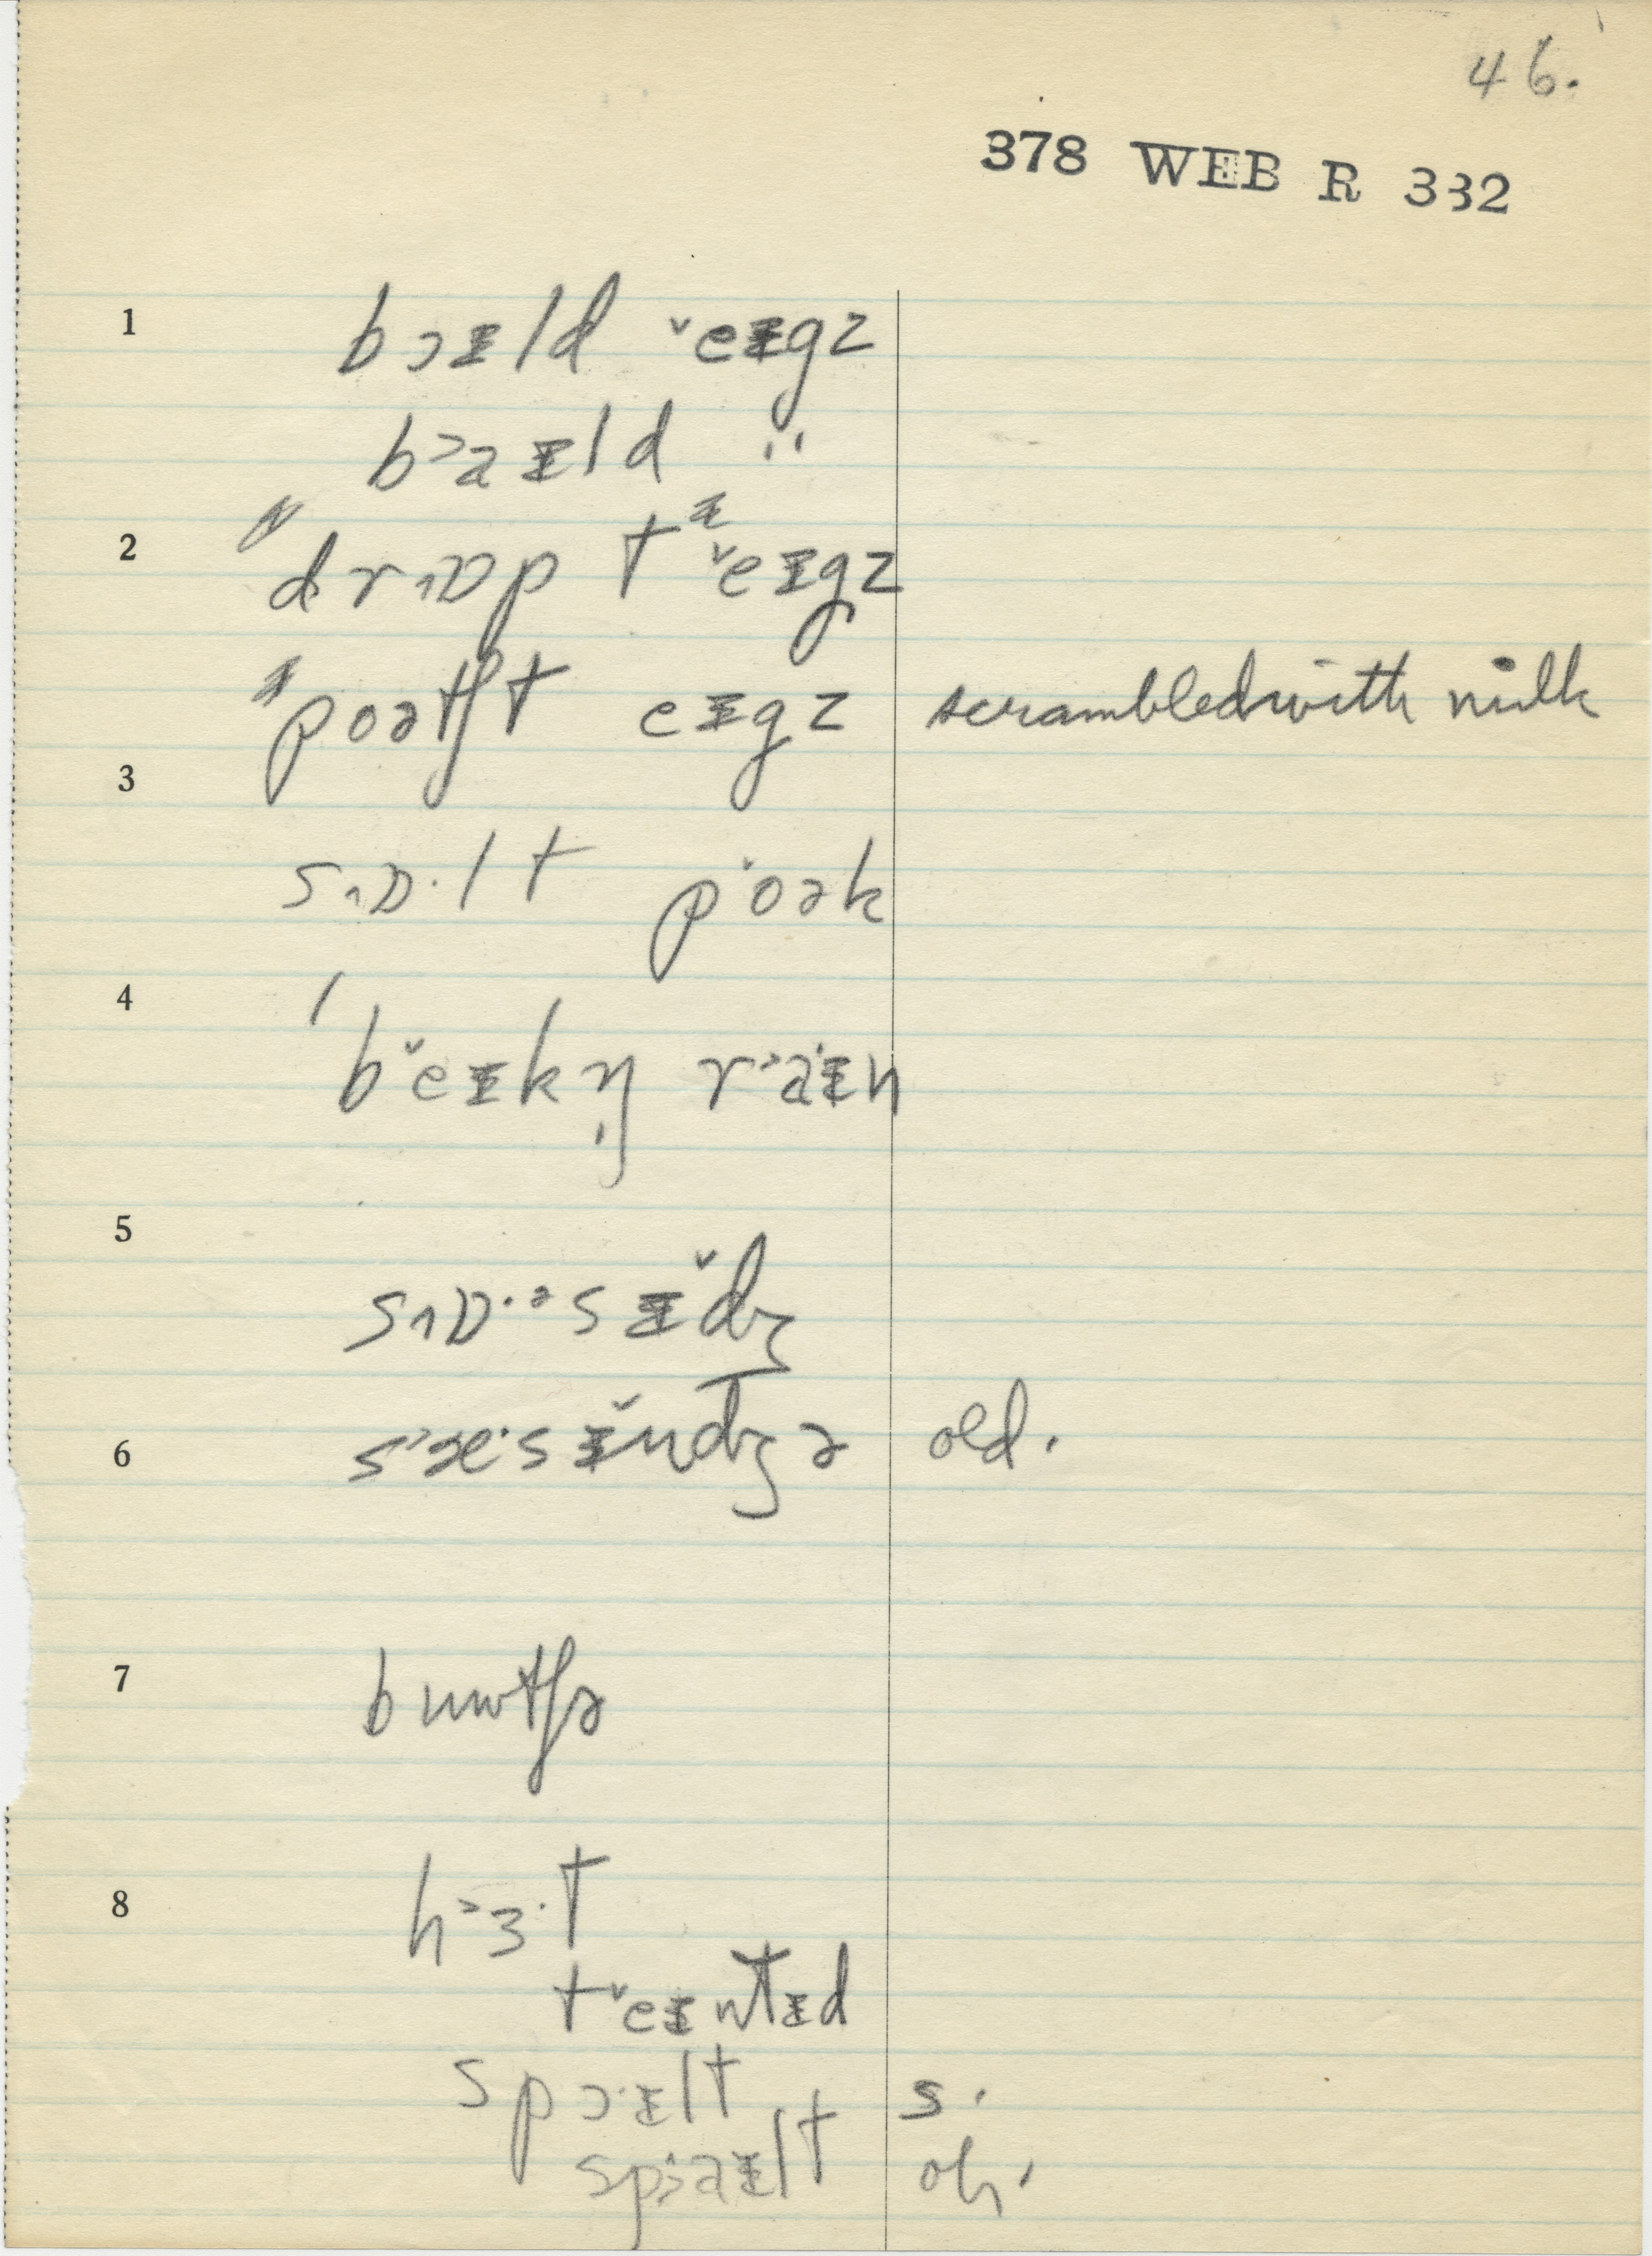 46.
378 WEB R 332
1 bɔɪld ˇeɪgz
b˃aɪld "
2 drɒp tᵻ ˇeɪgz
poətʃt eɪgz scrambled with milk
3
sɒ·lt p·oək
4 bˇeɪkŋ̩ r˃a·ɪn
5
sɒ·ᵊsɪˇdʒ
6 s˃æ·sɪˇndʒə old.
7 bʊtʃə
8 h˃ɜ·t
tˇeɪntɪd
spɔ·ɪlt s.
sp˃·aɪlt oh.